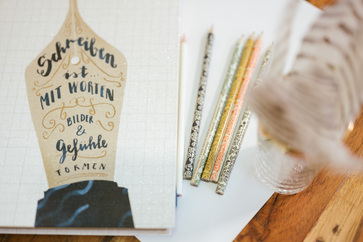 Schreiben
ist...
MIT WORTEN
BILDER
&
Gefühle
FORMEN